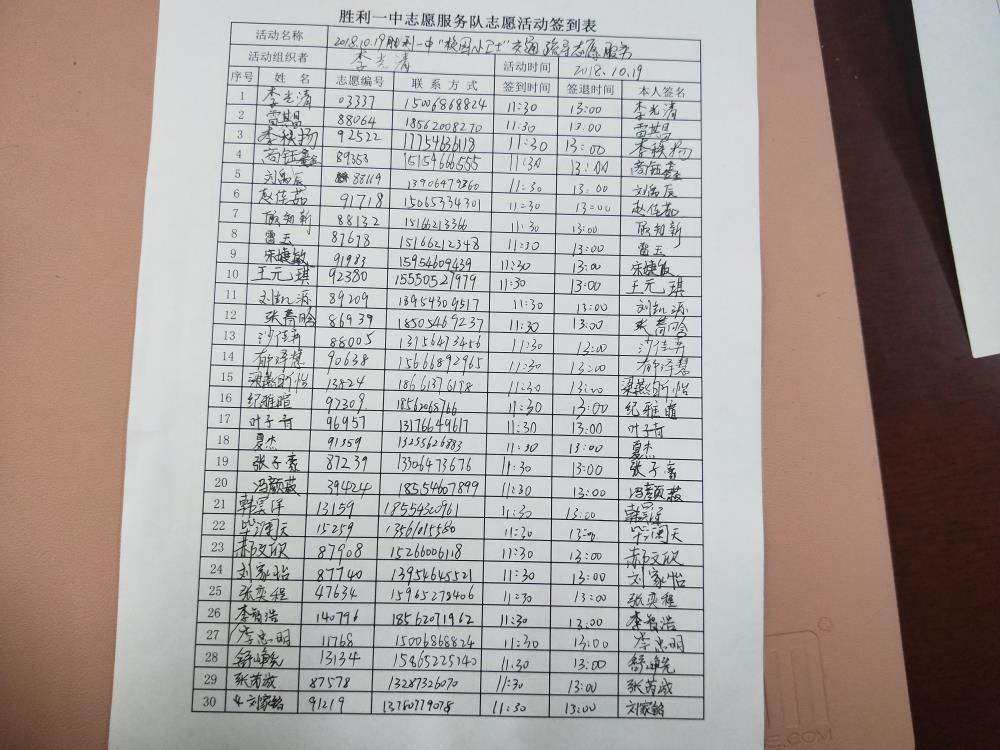 胜利一中志愿服务队志愿活动签到表
活动名称 2018.10.19胜利一中"校园小卫士"交通疏导志愿服务
活动组织者 李光清 活动时间 2018.10.19
序号 姓 名 志愿编号 联 系 方 式 签到时间 签退时间 本人签名
1 李光清 03337 15006868824 11:30 13:00 李光清
2 雷盟 88064 18562008270 11:30 13:00 雷盟
3 李秩扬 92522 17754636118 11:30 13:00 李秩扬
4 商钰鑫 89353 15154666555 11:30 13:00 商钰鑫
5 刘禹辰 88119 13906479360 11:30 13:00 刘禹辰
6 赵佳茹 91718 15065334301 11:30 13:00 赵佳茹
7 88132 15166213366 11:30 13:00
8 雷玉 87678 15166212348 11:30 13:00 雷玉
9 宋婕敏 91983 15954609439 11:30 13:00 宋婕敏
10 王元琪 92380 15550527979 11:30 13:00 王元琪
11 刘凯源 89209 18954309517 11:30 13:00 刘凯源
12 张 86939 18505469237 11:30 13:00 张
13 沙佳卉 88005 13156473456 11:30 13:00 沙佳卉
14 郁泽慧 90638 15666892965 11:30 13:00 郁泽慧
15 13824 18661376178 11:30 13:00
16 纪雅暄 97309 18562065766 11:30 13:00 纪雅暄
17 叶子青 96957 13176649617 11:30 13:00 叶子青
18 夏杰 91359 13255626883 11:30 13:00 夏杰
19 张子豪 87239 13306473676 11:30 13:00 张子豪
20 冯颜薇 39424 18554607899 11:30 13:00 冯颜薇
21 韩昊洋 13159 18554320961 11:30 13:00 韩昊洋
22 毕阔天 15259 13561015580 11:30 13:00 毕阔天
23 郝文欣 87908 15266006118 11:30 13:00 郝文欣
24 刘家怡 87740 13954645521 11:30 13:00 刘家怡
25 张奕程 47634 15965279406 11:30 13:00 张奕程
26 李智浩 140796 18562071962 11:30 13:00 李智浩
27 李忠明 11768 15006868824 11:30 13:00 李忠明
28 舒峥先 13134 15865225140 11:30 13:00 舒峥先
29 张芮成 87578 13287326070 11:30 13:00 张芮成
30 刘家铭 91219 13780779078 11:30 13:00 刘家铭